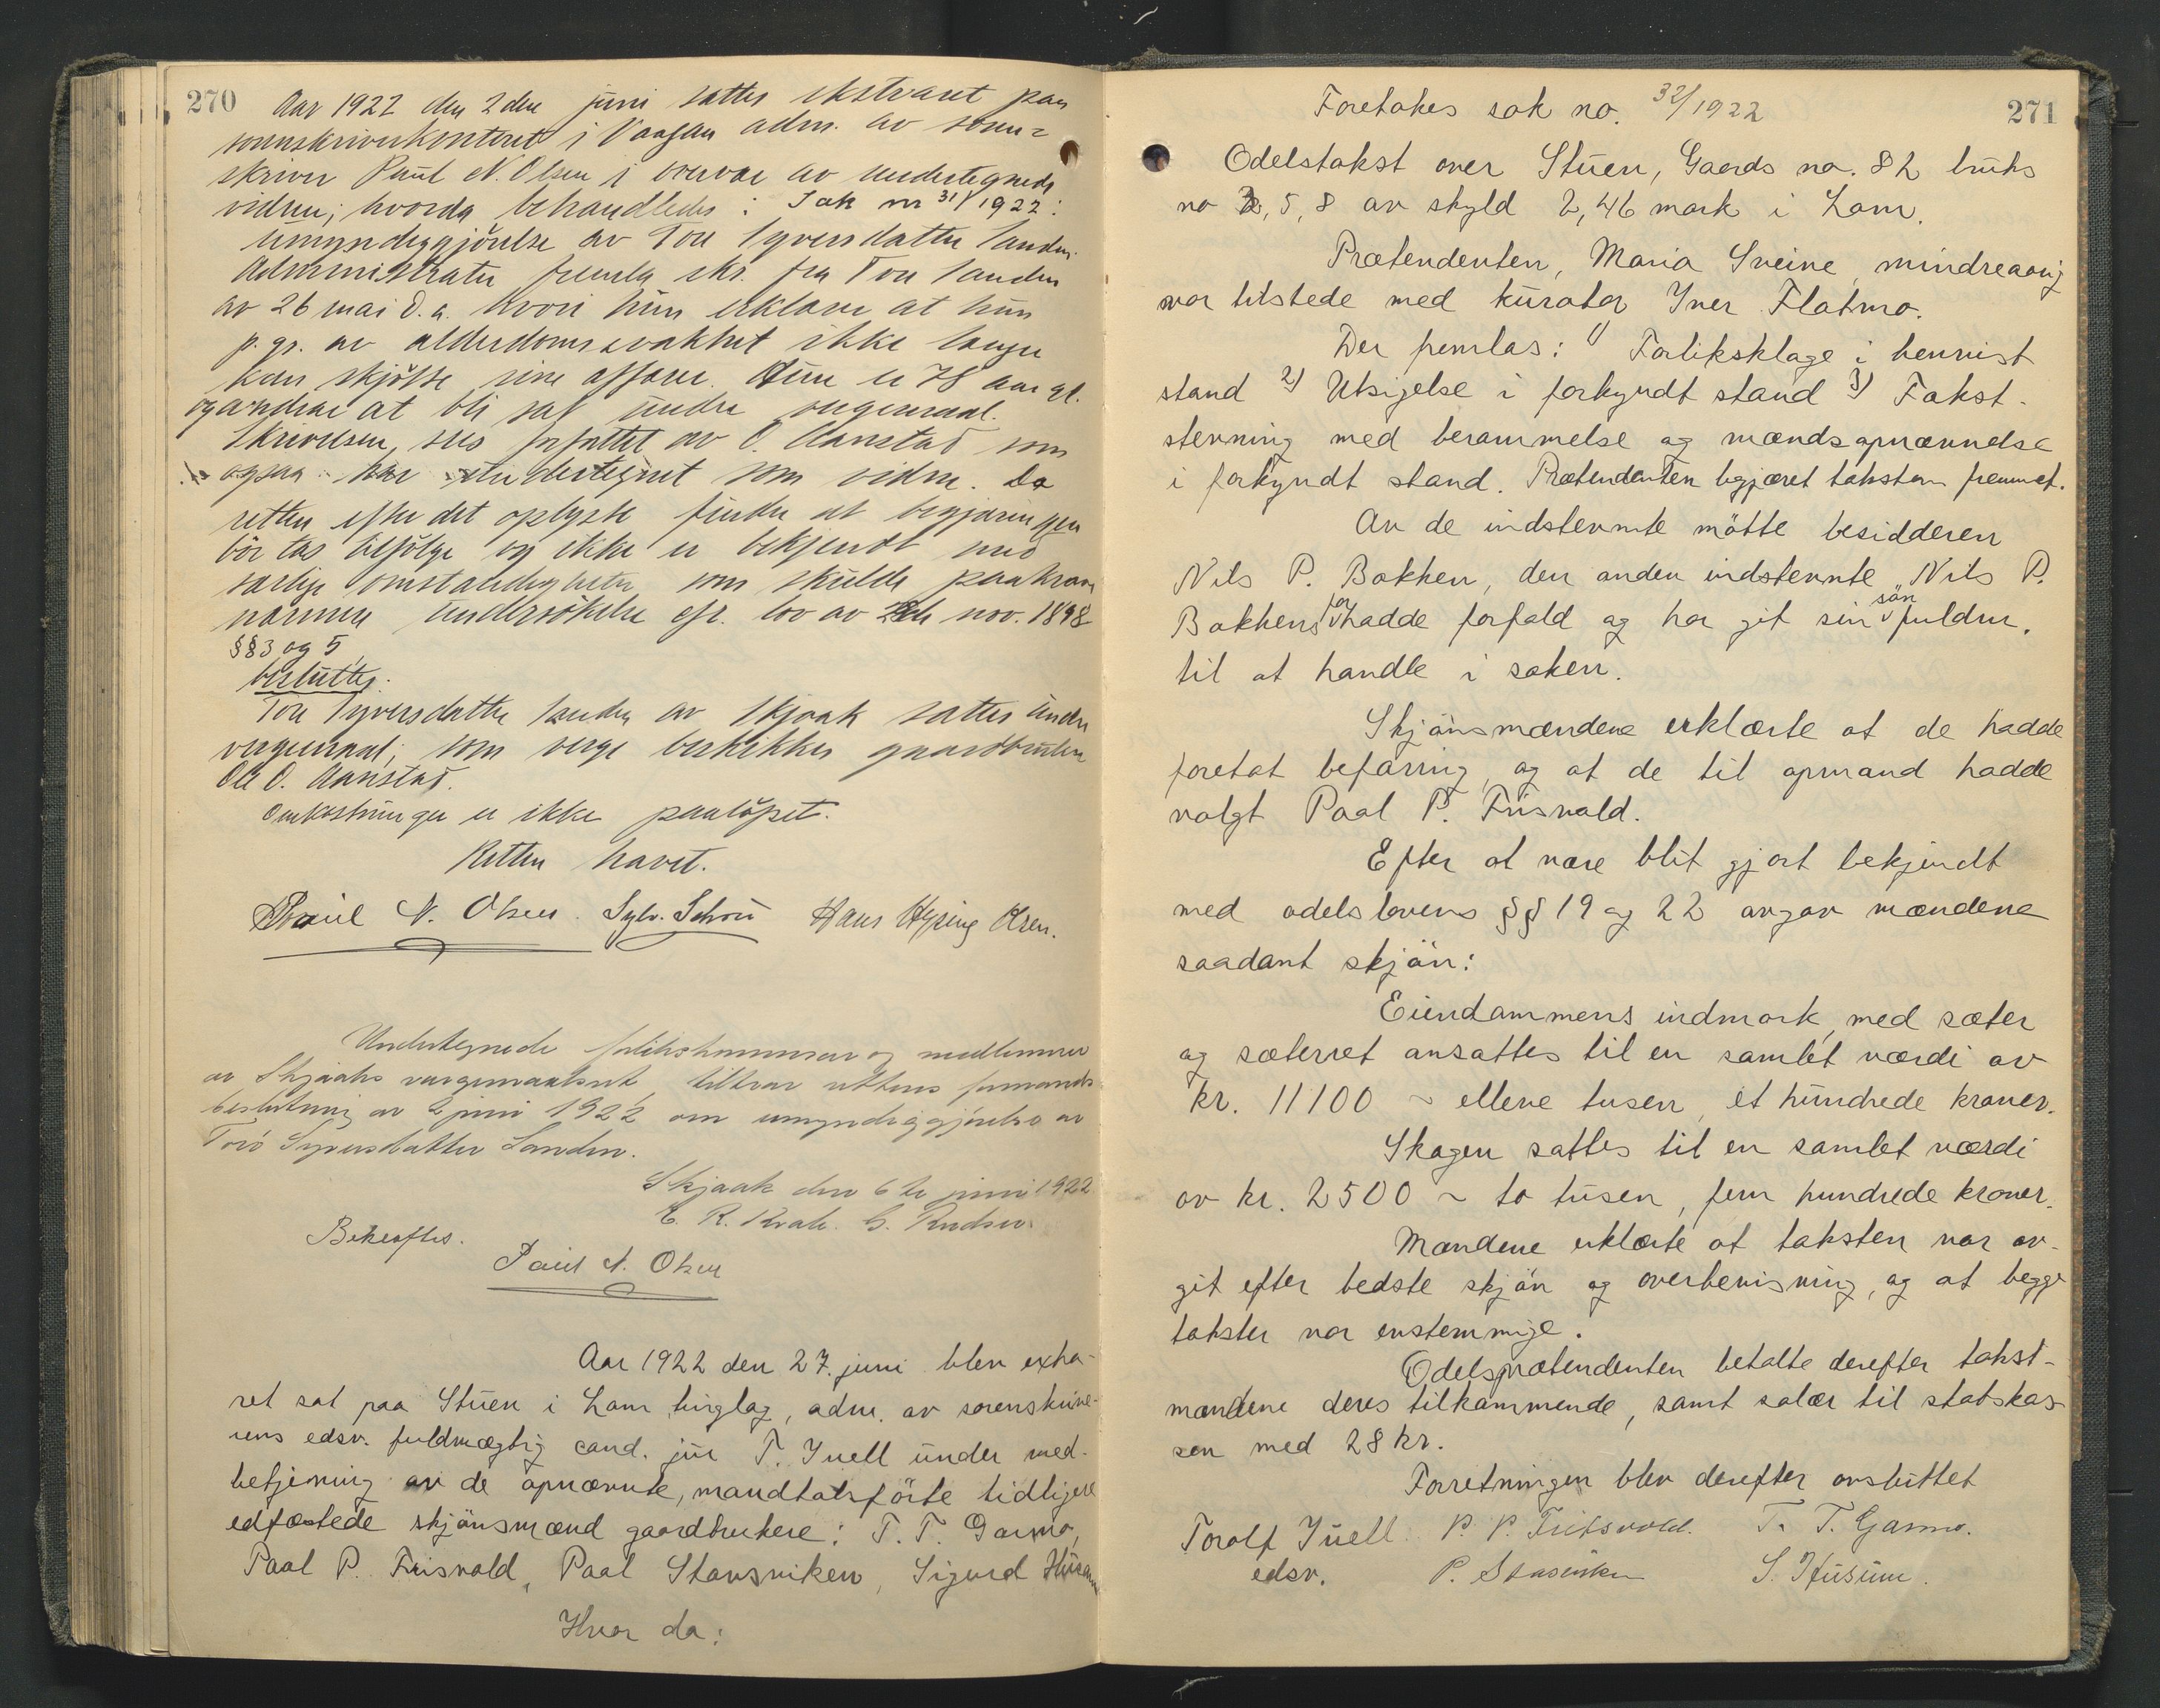 270
Aar 1922 den 2den juni sattes ekstraret paa
sorenskriverkontoret i Vaagaa adm. av soren=
skriver Paul N. Olsen i overvær av undertegnede
vidner; hvorda behandledes: Sak nr 31/1922:
Umyndiggjörelse av Toru Syversdatter Sanden.
Administrator fremla skr. fra Toru Sanden
av 26 mai d.a. hvori hun erklærer at hun
p.gr. av alderdomssvakhet ikke længer
kan skjötte sine affærer. Hun er 78 aar gl.
og ønsker at bli sat under vergemaal.
Skrivelsen sees forfattet av O. Aanstad som
ogsaa har undertegnet som vidne. Da
retten efter det oplyste finder at begjæringen
bör tas tilfölge og ikke er bekjendt med
særlige omstændigheter som skulde paakræve
nærmere undersökelse cfr. lov av 28de nov. 1898
§§ 3 og 5
besluttes:
Toru Syversdatter Sanden av Skjaak sættes under
vergemaal; som verge beskikkes gaardbruker
Ole O. Aanstad.
Omkostninger er ikke paalöpet.
Retten hævet.
Paul N. Olsen. Sylv. Schou Hans Hysing Olsen.
Undertegnede forlikskommisær og medlemmer
av Skjaaks værgemaalsret tiltrær rettens formands
beslutning av 2 juni 1922 om umyndiggjørelse av
Toro Syversdatter Sanden.
Skjaak den 6te juni 1922
E. R. Kvale. G. Rudsen.
Bekræftes.
Paul N. Olsen
Aar 1922 den 27. juni blev extra-
ret sat paa Stuen i Lom tinglag, adm. av sorenskrive-
rens edsv. fuldmægtig cand. jur T. Juell under med-
betjening av de opnævnte, mandtalsförte tidligere
edfæstede skjönsmænd gaardbrukere: T. T. Garmo,
Paal P. Frisvold, Paal Stavsviken, Sigurd Husum
Hvor da:
271
Foretokes sak no. 32/1922
Odelstakst over Stuen, Gaards no. 82 bruks
no 2, 5, 8 av skyld 2,46 mark i Lom.
Prætendenten, Maria Sveine, mindreaarig
var tilstede med kurator Iver Flatmo.
Der fremlas: 1) Forliksklage i henvist
stand 2) Utsigelse i forkyndt stand 3) Takst-
stevning med berammelse og mændsopnævnelse
i forkyndt stand. Prætendenten begjæret taksten fremmet.
Av de indstevnte mötte besidderen
Nils P. Bakken, den anden indstevnte, Nils P.
Bakkens far hadde forfald og har git sin sön fuldm.
til at handle i saken.
Skjönsmændene erklærte at de hadde
foretat befaring, og at de til opmand hadde
valgt Paal P. Frisvold.
Efter at være blit gjort bekjendt
med odelslovens §§ 19 og 22 avgav mændene
saadant skjön:
Eiendommens indmark, med sæter
og sæterret ansattes til en samlet værdi av
kr. 11100 ~ elleve tusen, et hundrede kroner.
Skogen sattes til en samlet værdi
av kr. 2500 ~ to tusen, fem hundrede kroner.
Mændene erklærte at taksten var av-
git efter bedste skjön og overbevisning, og at begge
takster var enstemmige.
Odelsprætendenten betalte derefter takst-
mændene deres tilkommende, samt salær til statskas-
sen med 28 kr.
Forretningen blev derefter avsluttet
Torolf Juell. P. P. Fritsvold. T. T. Garmo.
edsv. P. Stavsviken S. Husum.